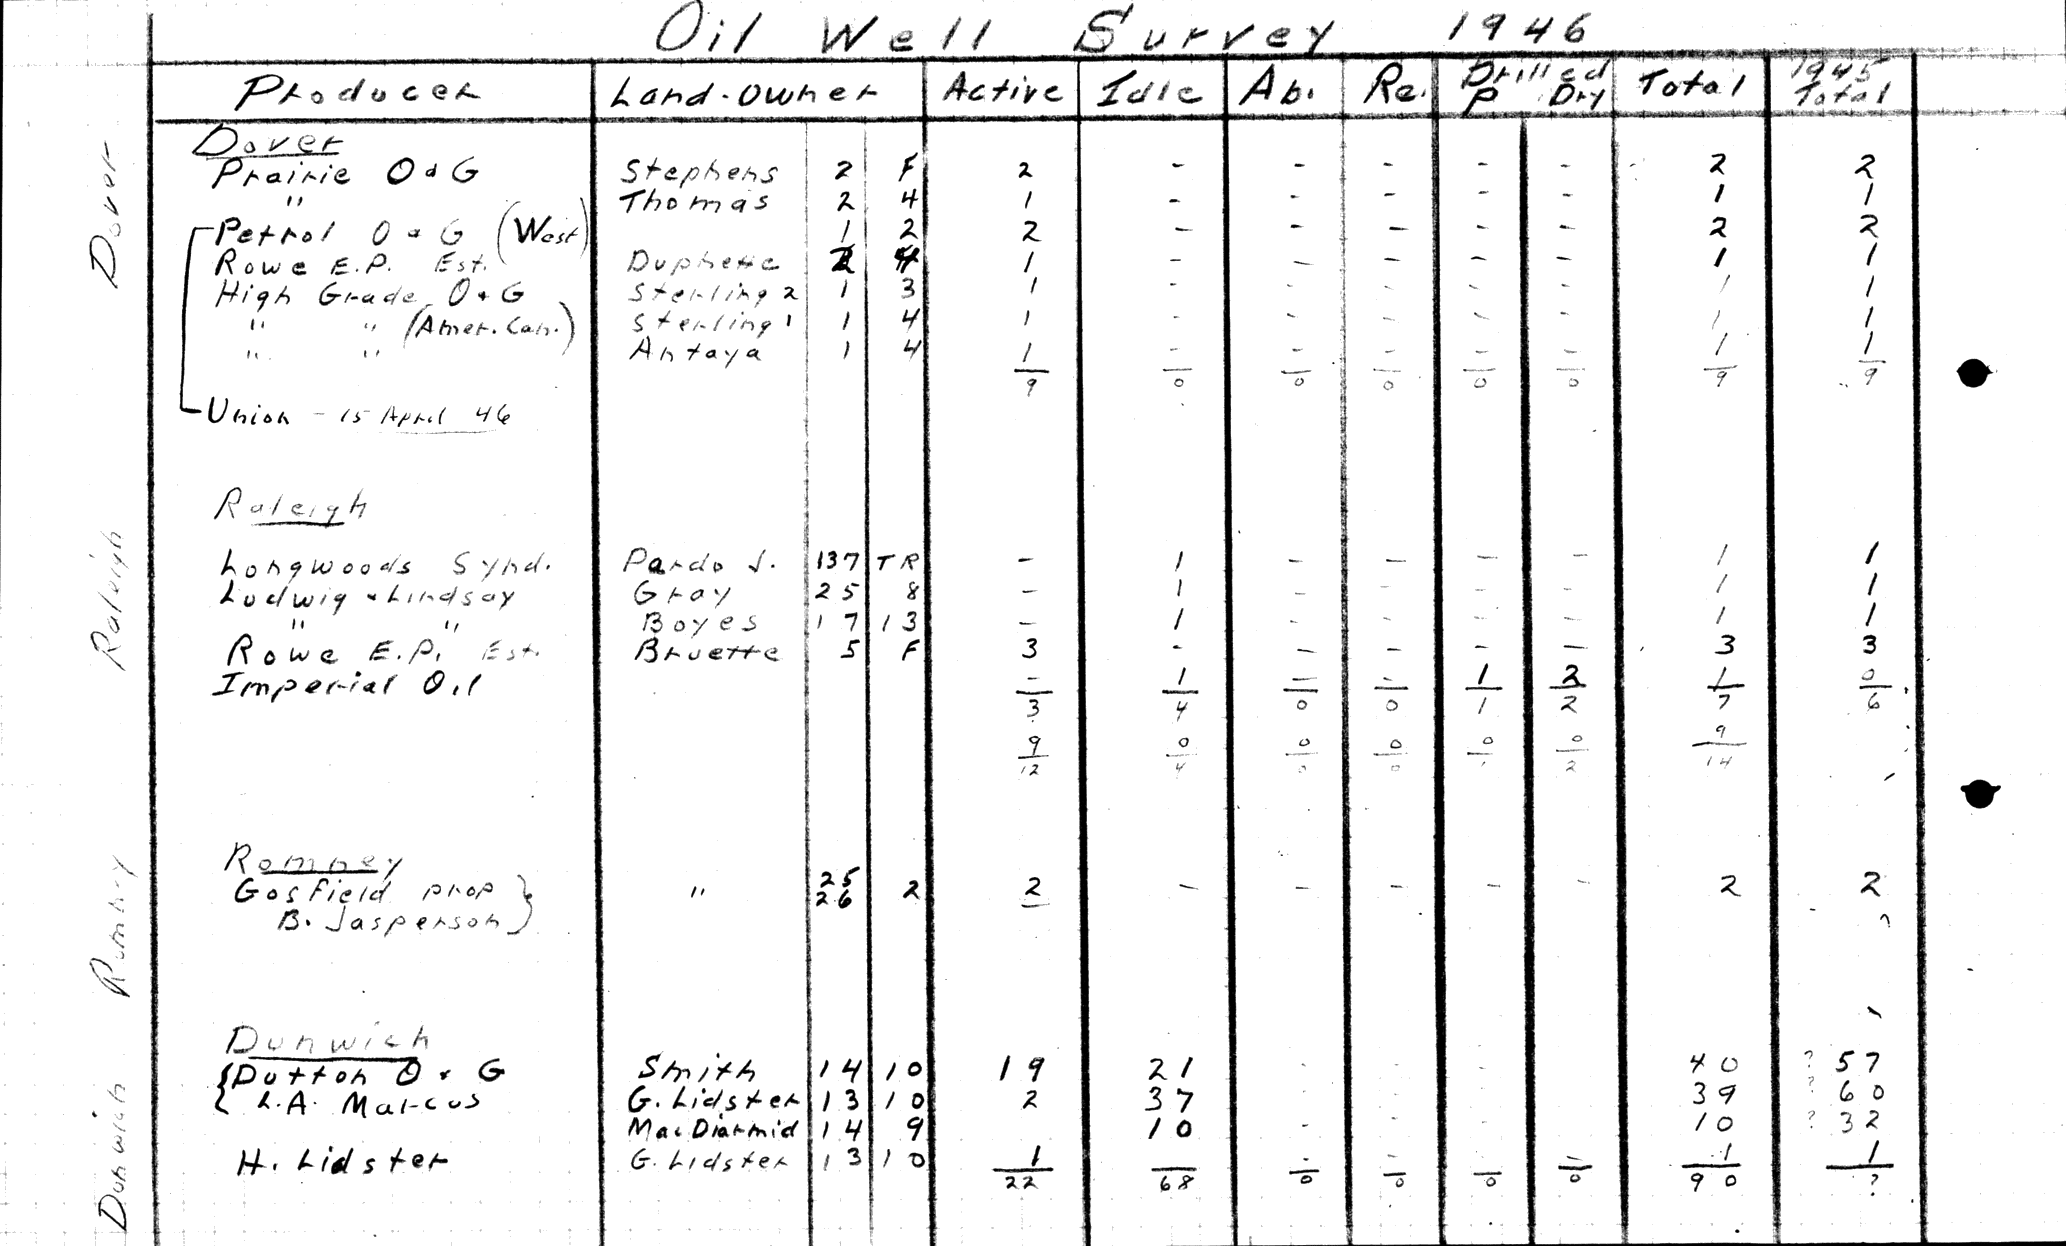 Oil Well Survey 1946
Producer Land-Owner Active Idle Ab. Re. Drilled P Dry Total 1945 Total
Dover
Prairie O & G Stephens 2 F 2 - - - - - 2 2
" Thomas 2 4 1 - - - - - 1 1
Petrol O & G (West) 1 2 2 - - - - - 2 2
Rowe E.P. Est. Duphette 4 1 - - - - - 1 1
High Grade O & G Sterling 2 1 3 1 - - - - - 1 1
" " (Amer. Can.) Sterling 1 1 4 1 - - - - - 1 1
" " Antaya 1 4 1 - - - - - 1 1
9 0 0 0 0 0 9 9
Union - 15 April 46
Raleigh
Longwoods Synd. Pardo J. 137 TR - 1 - - - - 1 1
Ludwig & Lindsay Gray 25 8 - 1 - - - - 1 1
" " Boyes 17 13 - 1 - - - - 1 1
Rowe E.P. Est. Bruette 5 F 3 - - - - - 3 3
Imperial Oil - 1 - - 1 2 1 0
3 4 0 0 1 2 7 6
9 0 0 0 0 0 9
12 4 0 0 1 2 14
Romney
Gosfield prop " 25 26 2 2 - - - - - 2 2
B. Jasperson ?
Dunwich
Dutton O & G Smith 14 10 19 21 - - - - 40 ? 57
L.A. Marcus G. Lidster 13 10 2 37 - - - - 39 ? 60
MacDiarmid 14 9 10 - - - - 10 ? 32
H. Lidster G. Lidster 13 10 1 - - - - 1 1
22 68 0 0 0 0 90 ?
Dover
Raleigh
Romney
Dunwich